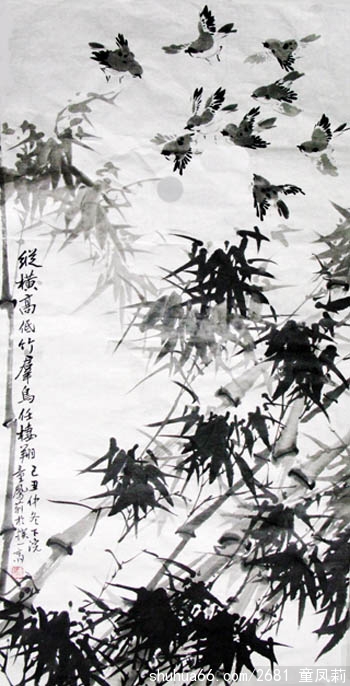 縱橫高低竹羣鳥任棲翔
己丑仲冬下浣
童鳳莉於
shuhua66.com/2681 童凤莉